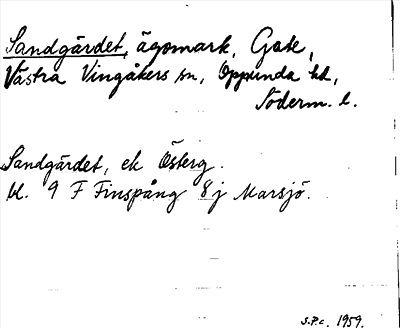 Sandgärdet, ägomark, Gate,
Västra Vingåkers sn, Oppunda hd,
Söderm. l.
Sandgärdet, ek Österg.
bl. 9 F Finspång 8 j Marsjö.
S.P.c. 1959.